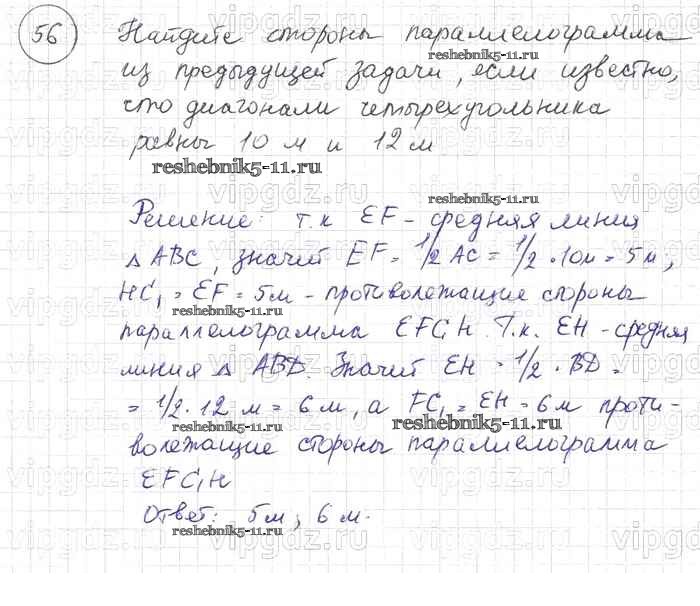 56 Найдите стороны параллелограмма
reshebnik5-11.ru
из предыдущей задачи, если известно,
что диагонали четырехугольника
равны 10 м и 12 м
reshebnik5-11.ru
reshebnik5-11.ru
Решение: т.к EF - средняя линия
Δ ABC, значит EF = 1/2 AC = 1/2 · 10м = 5 м,
HC₁ = EF = 5м - противолежащие стороны
reshebnik5-11.ru
параллелограмма EFC₁H. Т.к. EH - средняя
reshebnik5-11.ru
линия Δ ABD. Значит EH = 1/2 · BD =
= 1/2 · 12 м = 6 м, а FC₁ = EH = 6 м проти-
reshebnik5-11.ru
reshebnik5-11.ru
волежащие стороны параллелограмма
EFC₁H
Ответ: 5м; 6 м.
reshebnik5-11.ru